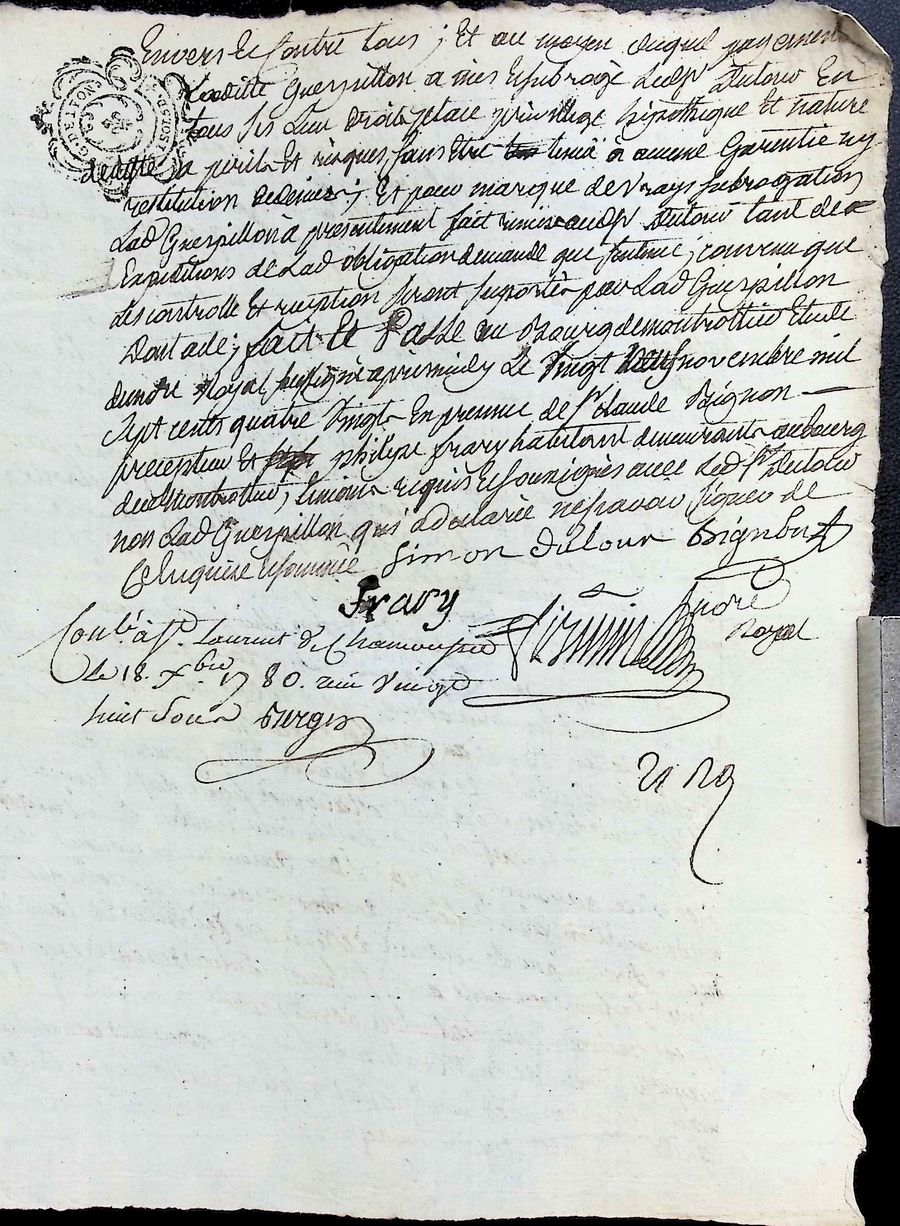 Envers Et Contre tous ; Et au moyen duquel payement
Laditte Guerpillon a mis Et subrogé Ledsr Dutour En
tous ses Lieu Droits place privillege hipothèque Et nature
de dette a perils Et risques sans Etre tenüe a aucune Garentie ny
restitution de deniers ; Et pour marque de Vraye subrogation
Lad Guerpillon a presentement fait remise audsr Dutour tant de
Expeditions de Lad obligation demande que sentence ; convenu que
Les controlle Et reception seront suportés par Lad Guerpillon
Dont acte ; fait Et Passé au Bourg de montrottier Etude
du nre Royal soussigné apres midy Le Vingt neuf novembre mil
Sept cents quatre Vingt En presence de sr Claude Bignon
precepteur Et philipe frary habitant demeurants au bourg
dud Montrottier, temoins requis Et soussignés avec led sr Dutour
non Lad Guerpillon qui a declarée ne sçavoir signer de
Ce Enquise Et sommée Simon Dutour Bignon
Frary
nre
Royal
Conlé a St. Laurent de Chamousset
Le 18. Xbre 1780. reçu Vingt
huit Sous